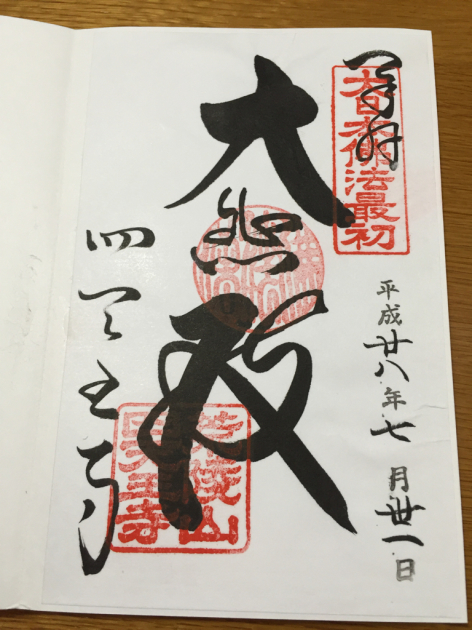 奉拝
大日本佛法最初
平成廿八年七月卅一日
大悲殿
荒陵山
四天王寺
四天王寺